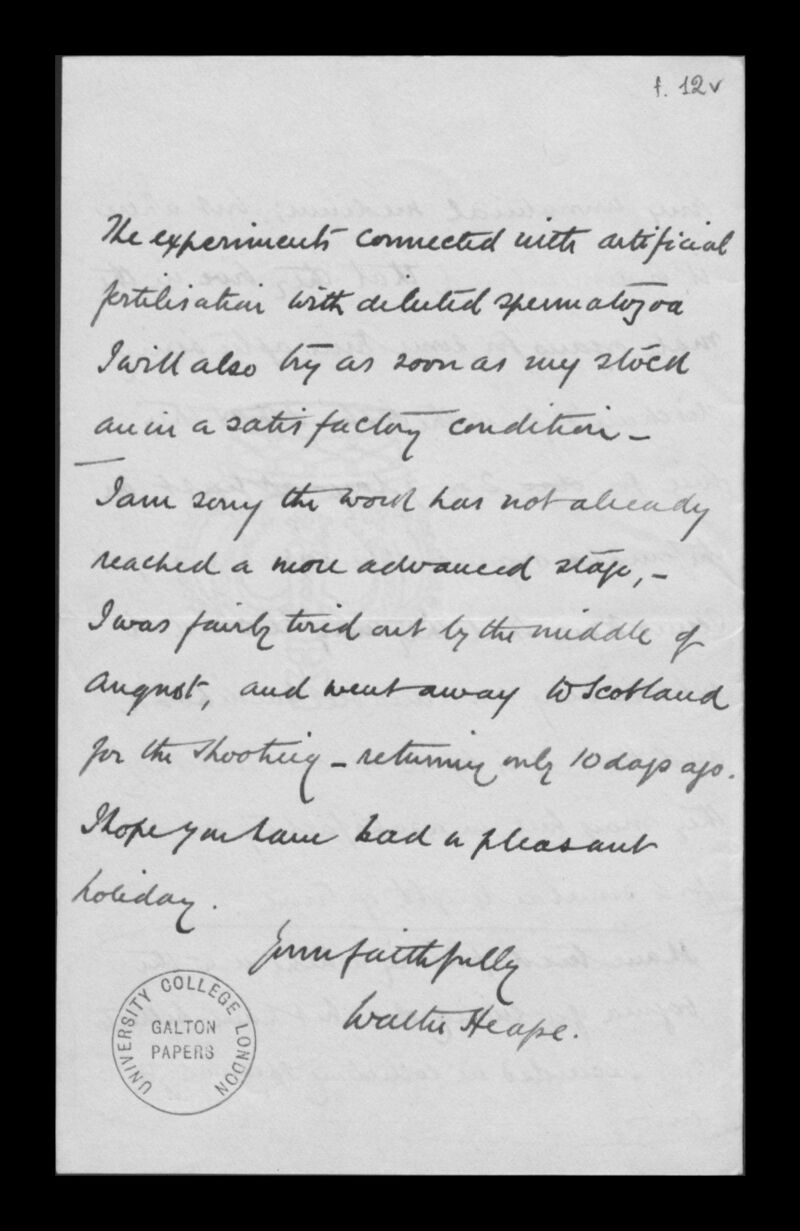 f. 12v
The experiments connected with artificial
fertilisation with diluted spermatozoa
I will also try as soon as my stock
are in a satisfactory condition —
I am sorry the work has not already
reached a more advanced stage, —
I was fairly tired out by the middle of
August, and went away to Scotland
for the shooting — returning only 10 days ago.
I hope you have had a pleasant
holiday.
Yours faithfully
Walter Heape.
UNIVERSITY COLLEGE LONDON
GALTON
PAPERS